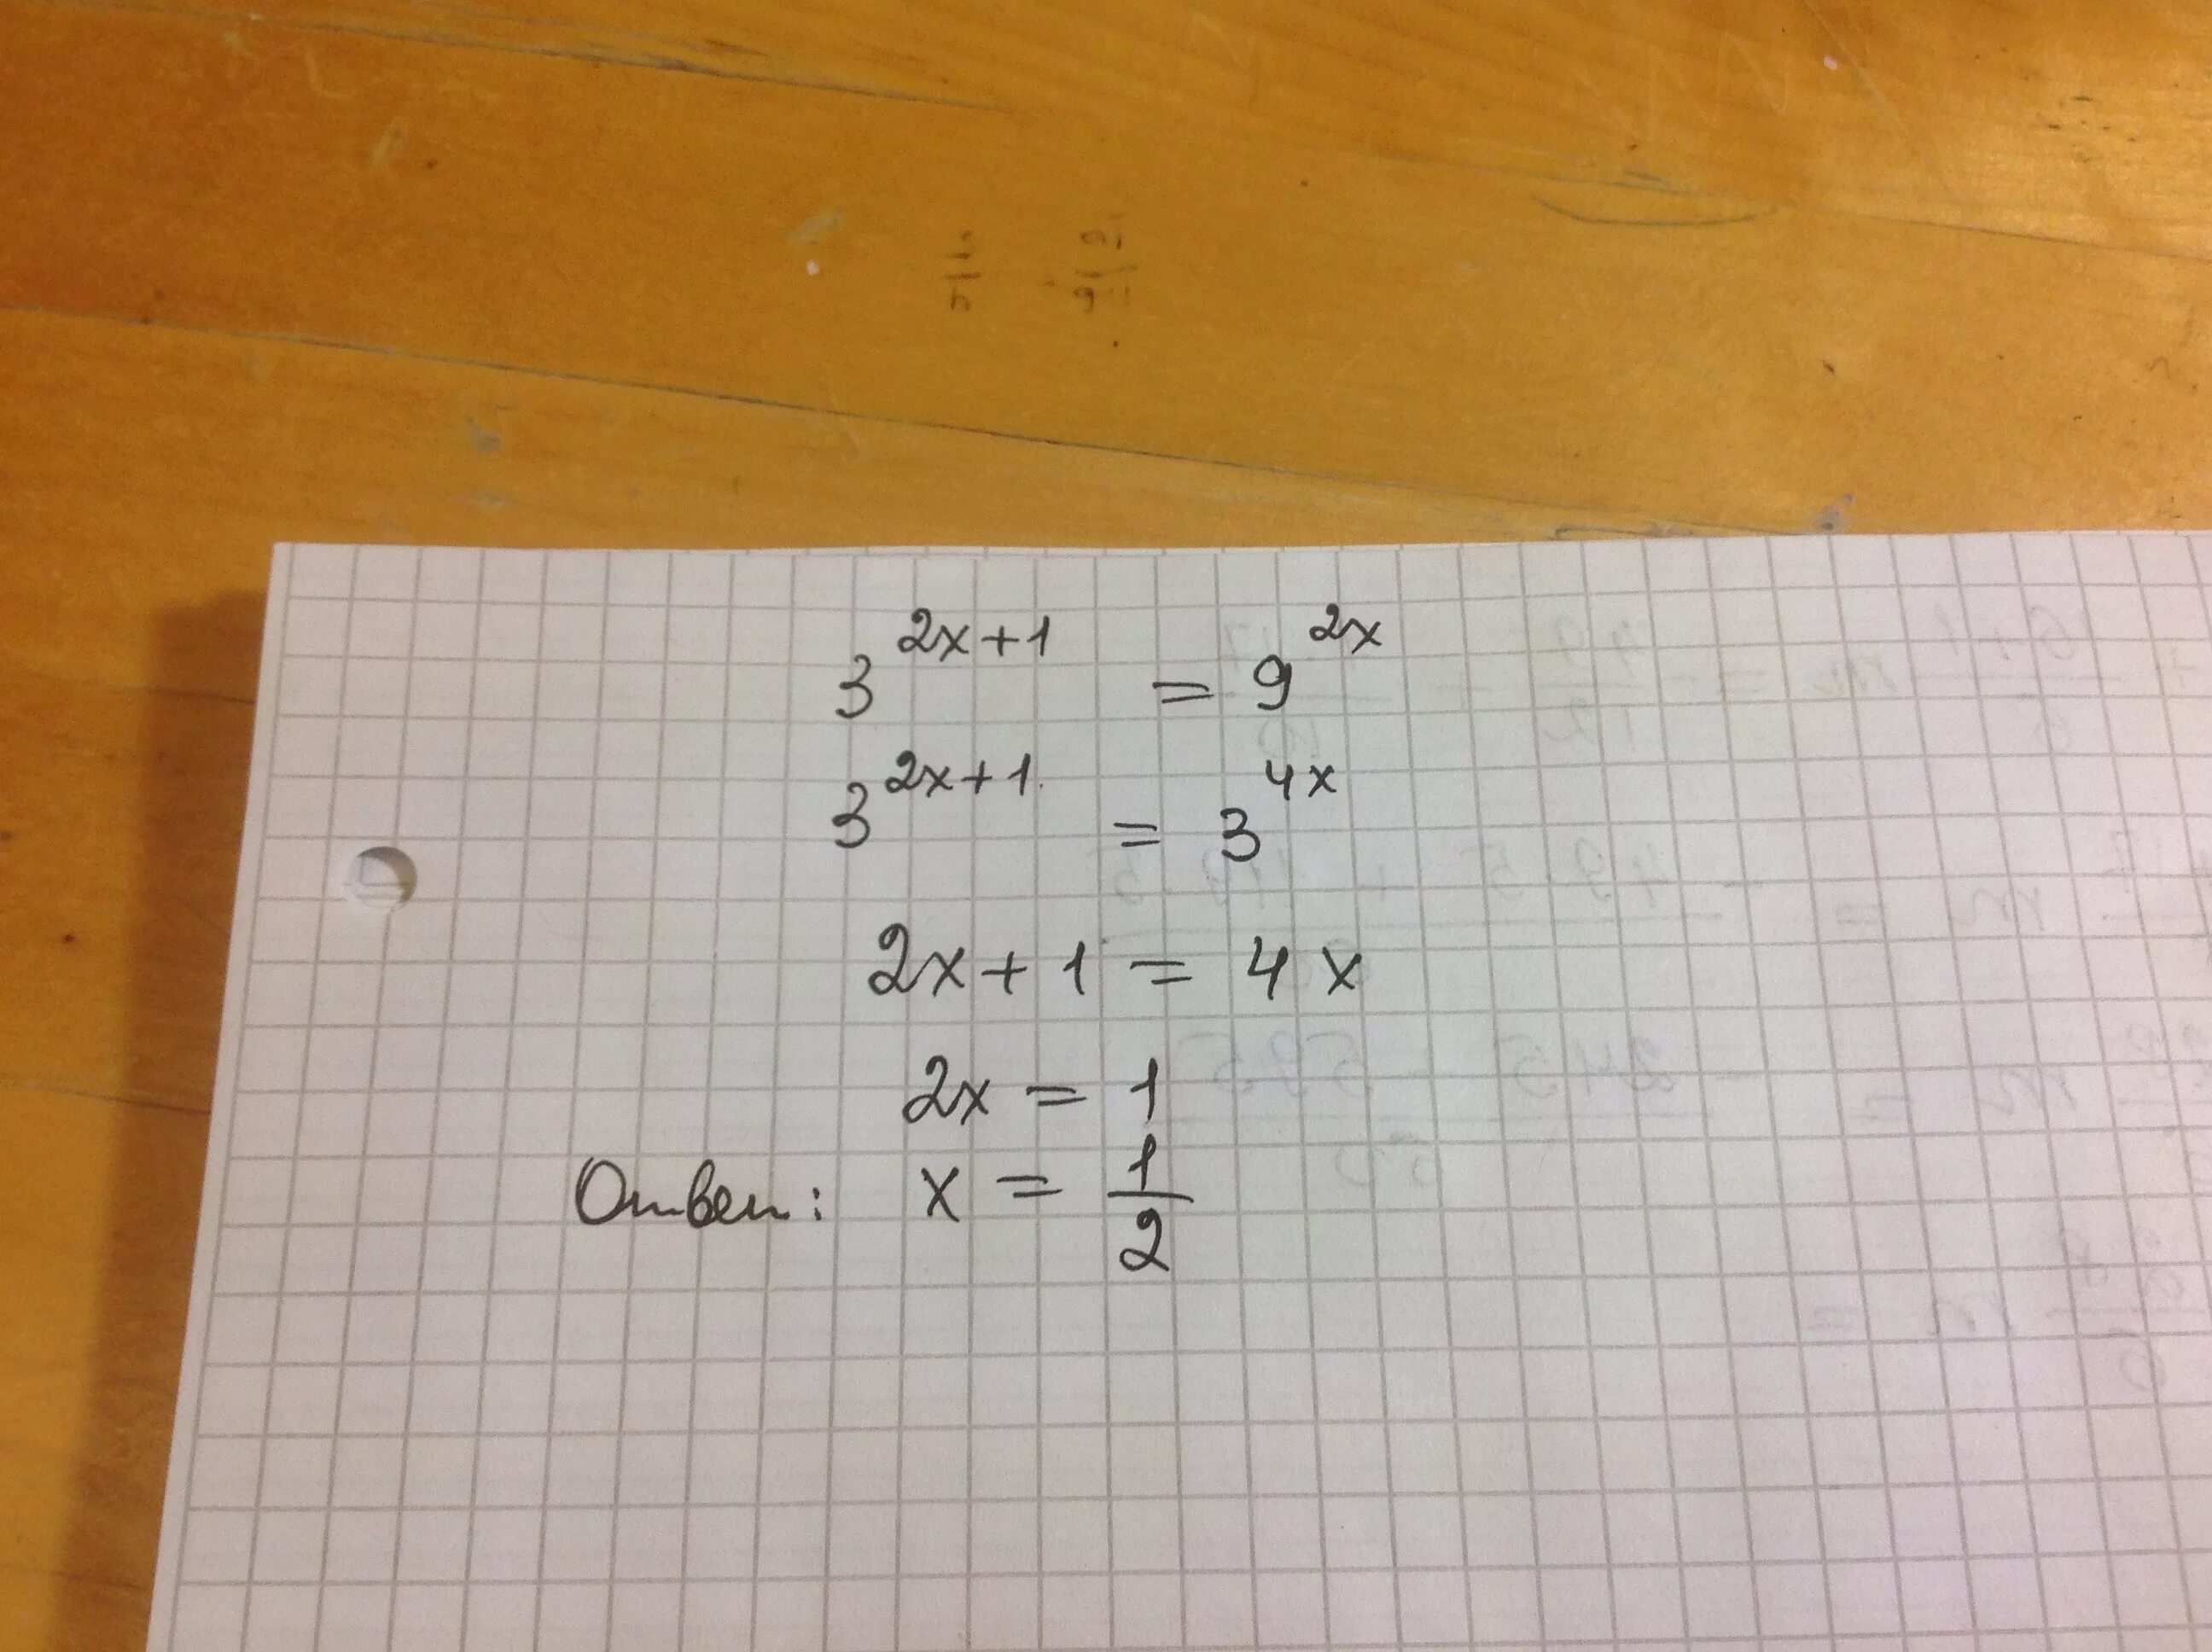 3^{2x+1} = 9^{2x}
3^{2x+1} = 3^{4x}
2x+1 = 4x
2x = 1
Ответ: x = 1/2